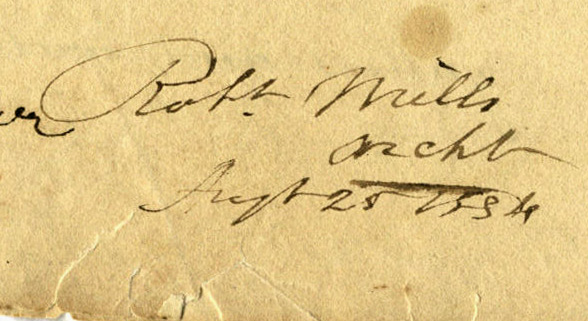 Robt. Mills
Archt
Augt 25 1834